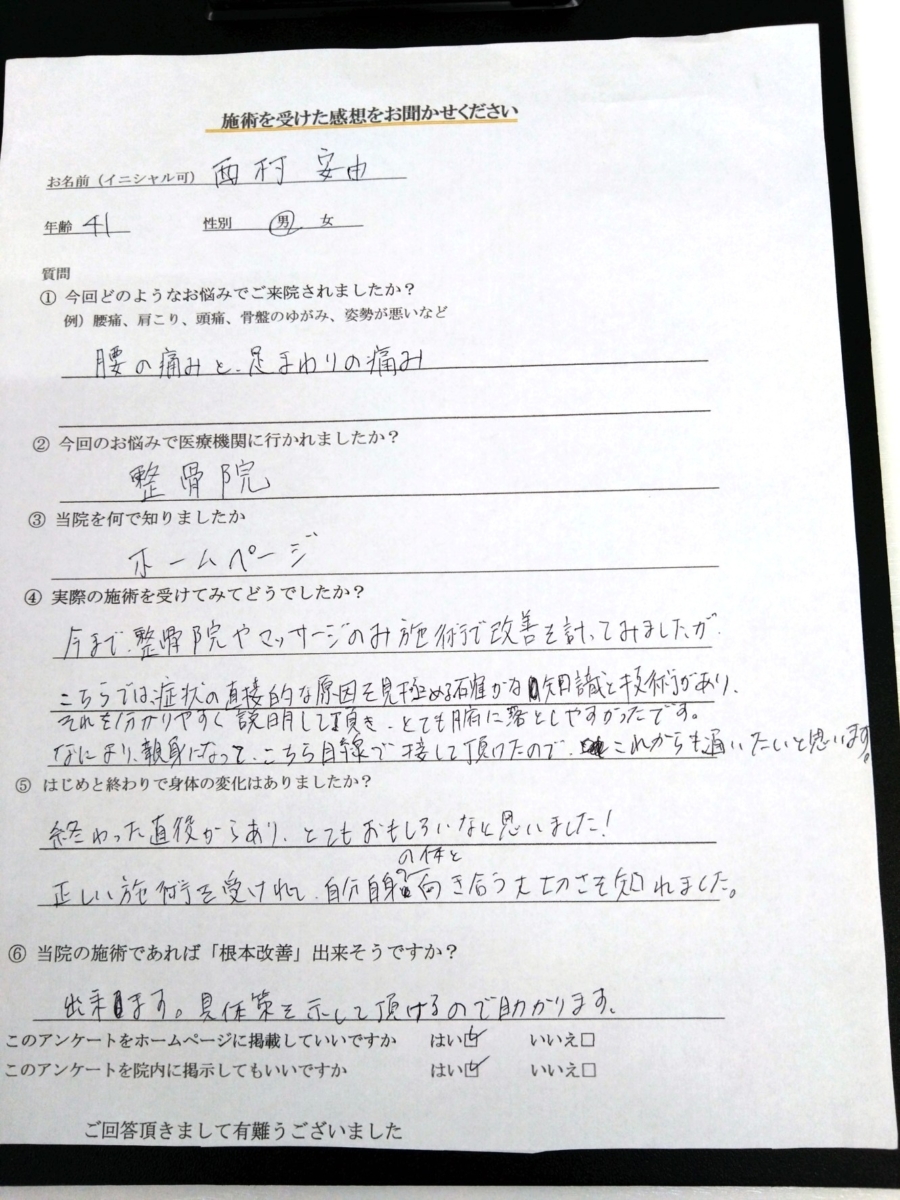 施術を受けた感想をお聞かせください
お名前（イニシャル可） 西村 安由
年齢 41 性別 男 女
質問
① 今回どのようなお悩みでご来院されましたか？
例）腰痛、肩こり、頭痛、骨盤のゆがみ、姿勢が悪いなど
腰の痛みと、足まわりの痛み
② 今回のお悩みで医療機関に行かれましたか？
整骨院
③ 当院を何で知りましたか
ホームページ
④ 実際の施術を受けてみてどうでしたか？
今まで、整骨院やマッサージのみ施術で改善を計ってみましたが、
こちらでは、症状の直接的な原因を見極める確かな知識と技術があり、
それを分かりやすく説明して頂き、とても腑に落としやすかったです。
なにより、親身になって、こちら目線で接して頂けたので、これからも通いたいと思います。
⑤ はじめと終わりで身体の変化はありましたか？
終わった直後からあり、とてもおもしろいなと思いました！
の体と
正しい施術を受けれて、自分自身向き合う大切さを知れました。
⑥ 当院の施術であれば「根本改善」出来そうですか？
出来ます。具体策を示して頂けるので助かります。
このアンケートをホームページに掲載していいですか はい☑ いいえ□
このアンケートを院内に掲示してもいいですか はい☑ いいえ□
ご回答頂きまして有難うございました